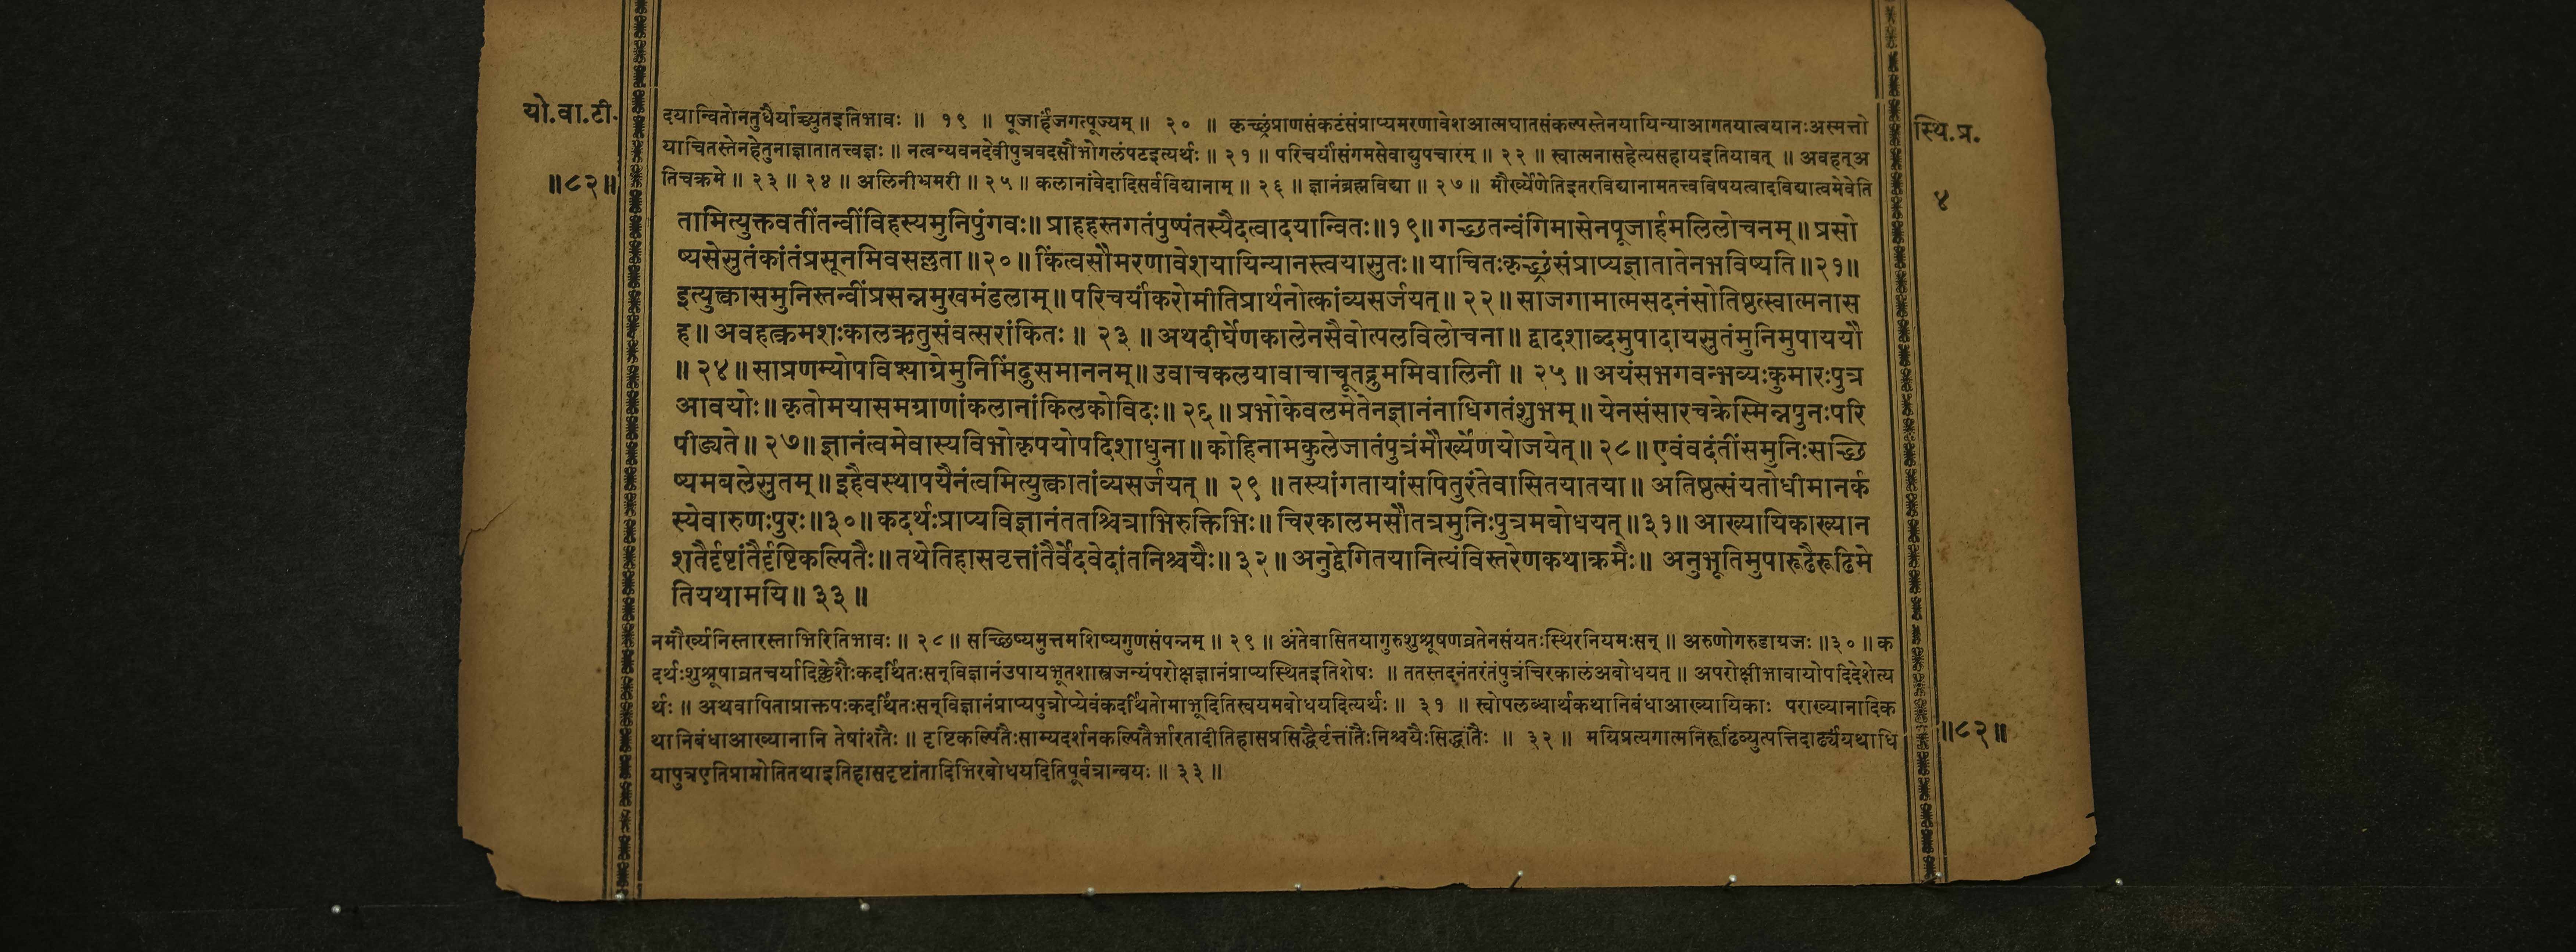 यो.वा.टी.
॥८२॥
दयान्वितोनतुधैर्याच्च्युतइतिभावः ॥ १९ ॥ पूजार्हंजगत्पूज्यम् ॥ २० ॥ कृच्छ्रंप्राणसंकटंसंप्राप्यमरणावेशआत्मघातसंकल्पस्तेनयायिन्याआगतयात्वयानःअस्मत्तो
याचितस्तेनहेतुनाज्ञातातत्त्वज्ञः ॥ नत्वन्यवनदेवीपुत्रवदसौभोगलंपटइत्यर्थः ॥ २१ ॥ परिचर्यांसंगमसेवाद्युपचारम् ॥ २२ ॥ स्वात्मनासहेत्यसहायइतियावत् ॥ अवहत्अ
तिचक्रमे ॥ २३ ॥ २४ ॥ अलिनीभ्रमरी ॥ २५ ॥ कलानांवेदादिसर्वविद्यानाम् ॥ २६ ॥ ज्ञानंब्रह्मविद्या ॥ २७ ॥ मौर्ख्येणेतिइतरविद्यानामतत्त्वविषयत्वादविद्यात्वमेवेति
तामित्युक्तवतींतन्वींविहस्यमुनिपुंगवः॥ प्राहहस्तगतंपुष्पंतस्यैदत्वादयान्वितः॥१९॥ गच्छतन्वंगिमासेनपूजार्हमलिलोचनम्॥ प्रसो
ष्यसेसुतंकांतंप्रसूनमिवसल्लता॥२०॥ किंत्वसौमरणावेशयायिन्यानस्त्वयासुतः॥ याचितःकृच्छ्रंसंप्राप्यज्ञातातेनभविष्यति॥२१॥
इत्युक्त्वासमुनिस्तन्वींप्रसन्नमुखमंडलाम्॥ परिचर्यांकरोमीतिप्रार्थनोत्कांव्यसर्जयत्॥ २२॥ साजगामात्मसदनंसोतिष्ठत्स्वात्मनास
ह॥ अवहत्क्रमशःकालऋतुसंवत्सरांकितः ॥ २३ ॥ अथदीर्घेणकालेनसैवोत्पलविलोचना॥ द्वादशाब्दमुपादायसुतंमुनिमुपाययौ
॥ २४॥ साप्रणम्योपविश्याग्रेमुनिमिंदुसमाननम्॥ उवाचकलयावाचाचूतद्रुममिवालिनी ॥ २५ ॥ अयंसभगवन्भव्यःकुमारःपुत्र
आवयोः॥ कृतोमयासमग्राणांकलानांकिलकोविदः॥ २६॥ प्रभोकेवलमेतेनज्ञानंनाधिगतंशुभम्॥ येनसंसारचक्रेस्मिन्नपुनःपरि
पीड्यते॥ २७॥ ज्ञानंत्वमेवास्यविभोकृपयोपदिशाधुना॥ कोहिनामकुलेजातंपुत्रंमौर्ख्येणयोजयेत्॥ २८॥ एवंवदंतींसमुनिःसच्छि
ष्यमबलेसुतम्॥ इहैवस्थापयैनंत्वमित्युक्त्वातांव्यसर्जयत्॥ २९ ॥ तस्यांगतायांसपितुरंतेवासितयातया॥ अतिष्ठत्संयतोधीमानर्क
स्येवारुणःपुरः॥३०॥ कदर्थःप्राप्यविज्ञानंततश्चित्राभिरुक्तिभिः॥ चिरकालमसौतत्रमुनिःपुत्रमबोधयत्॥३१॥ आख्यायिकाख्यान
शतैर्दृष्टांतैर्दृष्टिकल्पितैः॥ तथेतिहासवृत्तांतैर्वेदवेदांतनिश्चयैः॥ ३२॥ अनुद्वेगितयानित्यंविस्तरेणकथाक्रमैः॥ अनुभूतिमुपारूढैरूढिमे
तियथामयि॥ ३३ ॥
नमौर्ख्यनिस्तारस्ताभिरितिभावः ॥ २८॥ सच्छिष्यमुत्तमशिष्यगुणसंपन्नम् ॥ २९ ॥ अंतेवासितयागुरुशुश्रूषणव्रतेनसंयतःस्थिरनियमःसन् ॥ अरुणोगरुडाग्रजः ॥३०॥ क
दर्थःशुश्रूषाव्रतचर्यादिक्लेशैःकदर्थितःसन्विज्ञानंउपायभूतशास्त्रजन्यंपरोक्षज्ञानंप्राप्यस्थितइतिशेषः ॥ ततस्तदनंतरंतंपुत्रंचिरकालंअबोधयत् ॥ अपरोक्षीभावायोपदिदेशेत्य
र्थः ॥ अथवापिताप्राक्तपःकदर्थितःसन्विज्ञानंप्राप्यपुत्रोप्येवंकदर्थितोमाभूदितिस्वयमबोधयदित्यर्थः ॥ ३१ ॥ स्वोपलब्धार्थकथानिबंधाआख्यायिकाः पराख्यानादिक
थानिबंधाआख्यानानि तेषांशतैः ॥ दृष्टिकल्पितैःसाम्यदर्शनकल्पितैर्भारतादीतिहासप्रसिद्धैर्वृत्तांतैःनिश्चयैःसिद्धांतैः ॥ ३२॥ मयिप्रत्यगात्मनिरूढिंव्युत्पत्तिदार्ढ्यंयथाधि
यापुत्रएतिप्राप्नोतितथाइतिहासदृष्टांतादिभिरबोधयदितिपूर्वत्रान्वयः ॥ ३३ ॥
स्थि.प्र.
४
॥८२॥